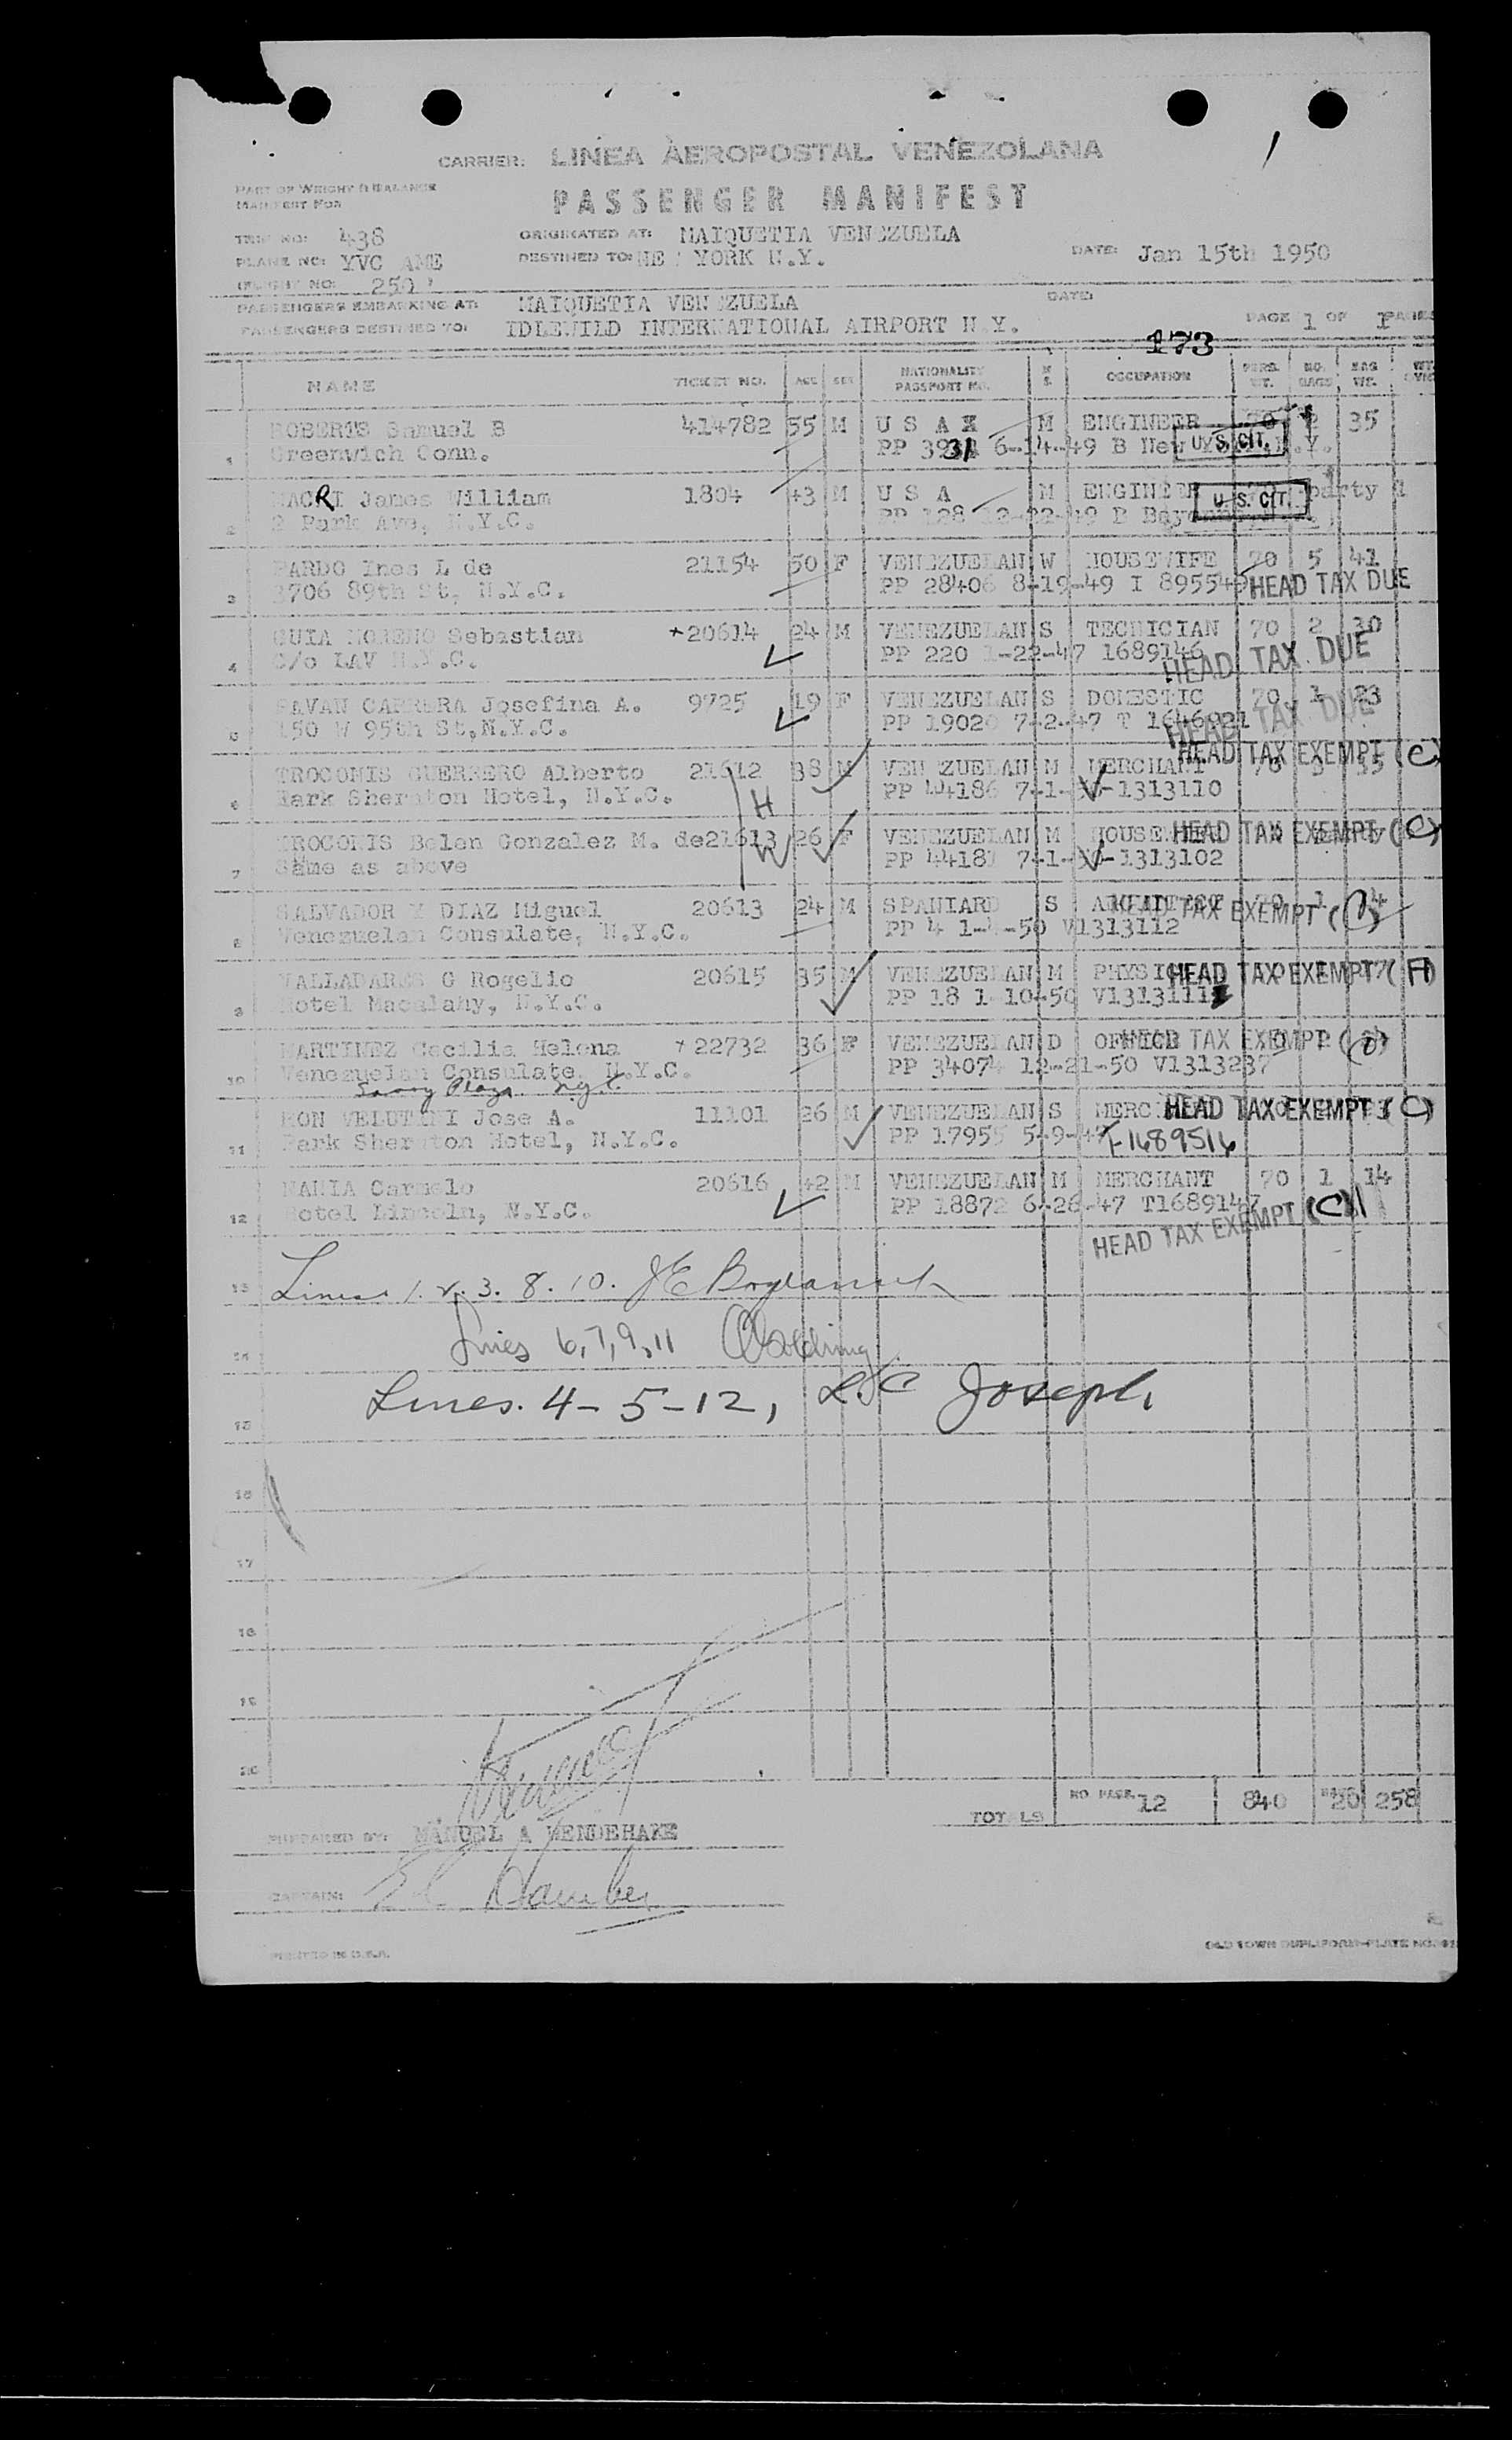 CARRIER: LINEA AEROPOSTAL VENEZOLANA
PART OF WEIGHT & BALANCE
MANIFEST FOR
PASSENGER MANIFEST
TRIP NO: 438
ORIGINATED AT: MAIQUETIA VENEZUELA
PLANE NO: YVC AME
DESTINED TO: NE YORK N.Y.
DATE: Jan 15th 1950
FLIGHT NO: 250
PASSENGERS EMBARKING AT: MAIQUETIA VENEZUELA
DATE:
PASSENGERS DESTINED TO: IDLEWILD INTERNATIONAL AIRPORT N.Y.
PAGE 1 OF 1 PAGES
173
NAME TICKET NO. AGE SEX NATIONALITY PASSPORT NO. M S OCCUPATION PERS. WT. NO. BAGS BAG WT.
1 ROBERTS Samuel B 414782 55 M U S A M ENGINEER 70 2 35
Greenwich Conn. PP 6-14-49 B New N.Y.
U.S. CIT.
2 MACRI James William 1804 43 M U S A M ENGINEER party 1
2 Park Ave, N.Y.C. PP 128 12-22-49 B
U.S. CIT.
3 PARDO Ines L de 21154 50 F VENEZUELAN W HOUSEWIFE 70 5 41
3706 89th St, N.Y.C. PP 28406 8-19-49 I 89554 HEAD TAX DUE
4 GUIA MORENO Sebastian *20614 24 M VENEZUELAN S TECNICIAN 70 2 30
C/o LAV N.Y.C. PP 220 1-22-47 1689146
HEAD TAX DUE
5 PAVAN CABRERA Josefina A. 9725 19 F VENEZUELAN S DOMESTIC 70 1 23
150 W 95th St, N.Y.C. PP 19020 7-2-47 T 1646921
HEAD TAX DUE
HEAD TAX EXEMPT (C)
6 TROCONIS GUERRERO Alberto 21612 38 M VENEZUELAN M MERCHANT 70 3 35
Park Sheraton Hotel, N.Y.C. PP 44186 7-1- V-1313110
H
7 TROCONIS Belen Gonzalez M. de 21613 26 F VENEZUELAN M HOUSE HEAD TAX EXEMPT (C)
Same as above PP 44187 7-1- V-1313102
W
8 SALVADOR Y DIAZ Miguel 20613 24 M SPANIARD S ARCHITECT 70 1 14
Venezuelan Consulate, N.Y.C. PP 4 1- -50 V1313112
HEAD TAX EXEMPT
9 VALLADARES G Rogelio 20615 35 M VENEZUELAN M HEAD TAX EXEMPT
Hotel Macalahy, N.Y.C. PP 18 1-10-50
10 MARTINEZ Cecilia Helena *22732 36 F VENEZUELAN D HEAD TAX EXEMPT
Venezuelan Consulate, N.Y.C. PP 34074 12-21-50 V1313237
11 RON VELUTINI Jose A. 11101 26 M VENEZUELAN S HEAD TAX EXEMPT (C)
Park Sheraton Hotel, N.Y.C. PP 17955 5-9-47 T-1689516
12 MANIA Carmelo 20616 42 M VENEZUELAN M MERCHANT 70 1 14
Hotel Lincoln, N.Y.C. PP 18872 6-26-47 T1689147
HEAD TAX EXEMPT (C)
13 Lines 1. 2. 3. 8. 10.
14 Lines 6, 7, 9, 11
Lines. 4-5-12, Joseph
15
16
17
18
19
20
TOTALS NO PASS. 12 840 20 258
PREPARED BY: MANUEL A WENDEHAKE
CAPTAIN:
PRINTED IN U.S.A.
OLD TOWN DUPLIFORM-PLATE NO.